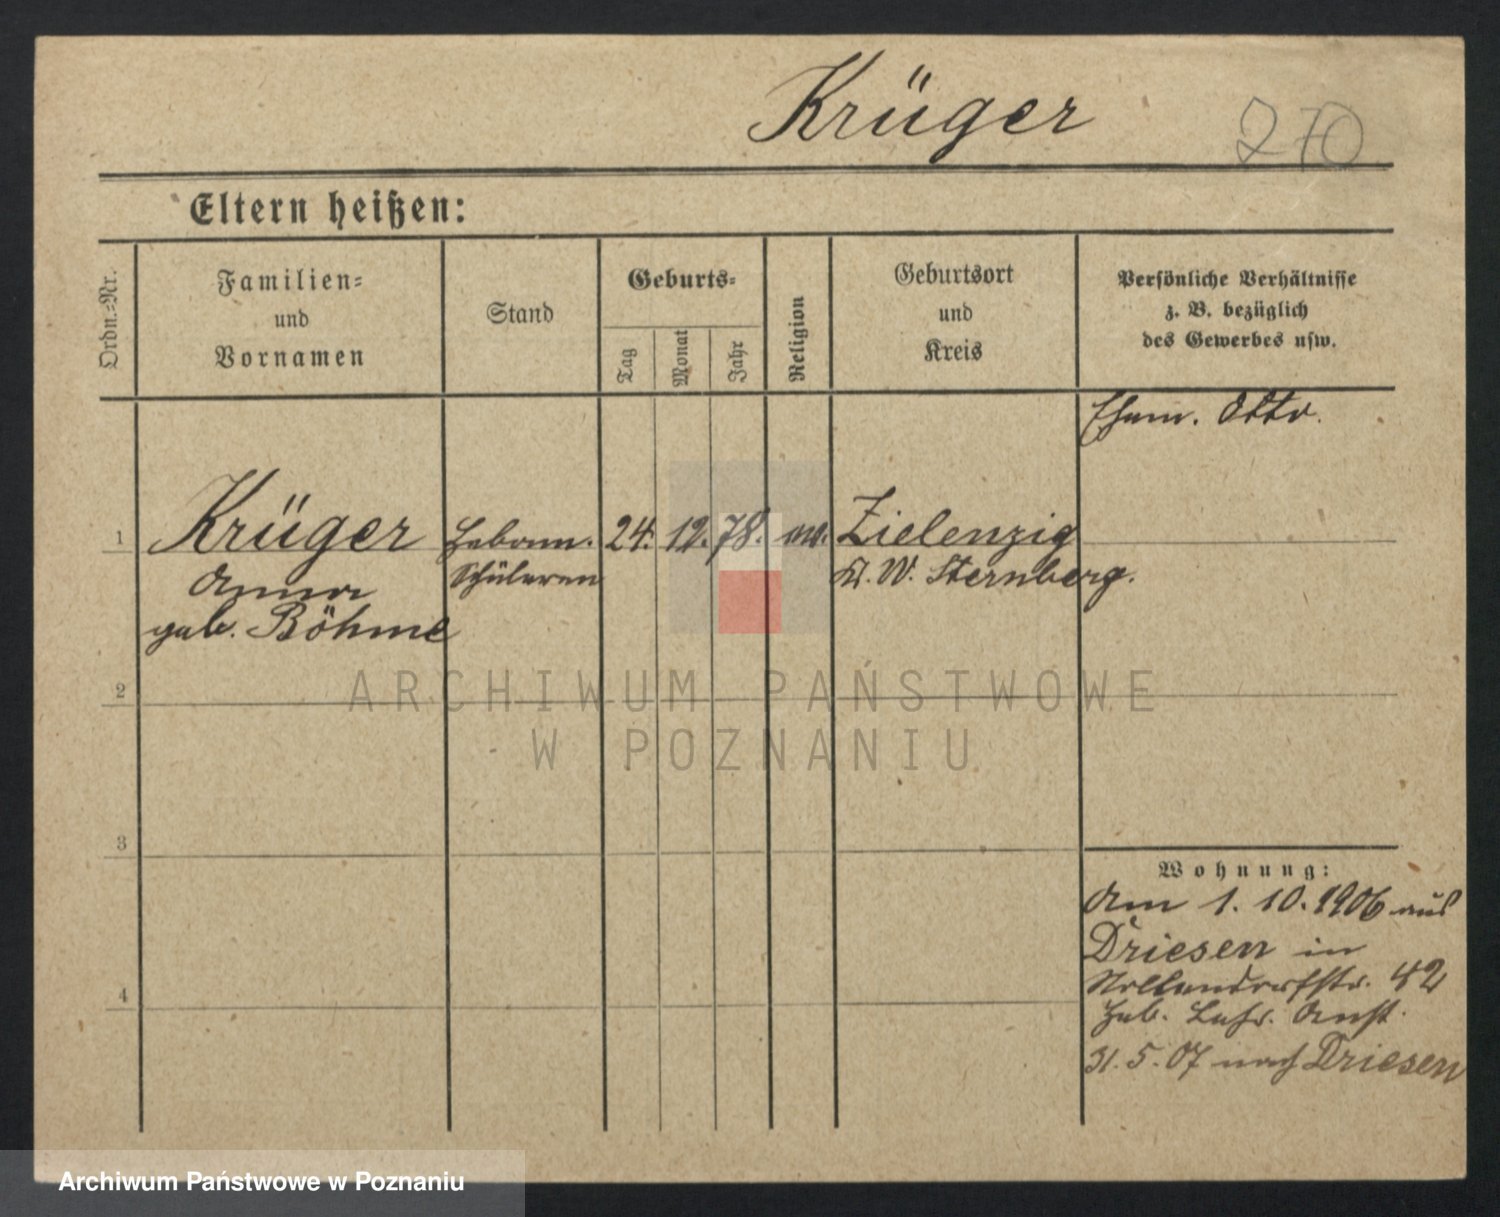 Krüger
270
Eltern heißen:
Ordn.-Nr.
Familien- und Vornamen
Stand
Geburts-
Tag
Monat
Jahr
Religion
Geburtsort und Kreis
Persönliche Verhältnisse
z. B. bezüglich
des Gewerbes usw.
Ehem. Otto.
1
Krüger
Anna
geb. Böhme
Hebamm.
Schülerin
24. 12. 78. ev.
Zielenzig
Kr. W. Sternberg.
2
3
4
Wohnung:
Am 1. 10. 1906 aus
Driesen in
Nollendorfstr. 42
Heb. Lehr. Anst.
31. 5. 07 nach Driesen
ARCHIWUM PAŃSTWOWE
W POZNANIU
Archiwum Państwowe w Poznaniu